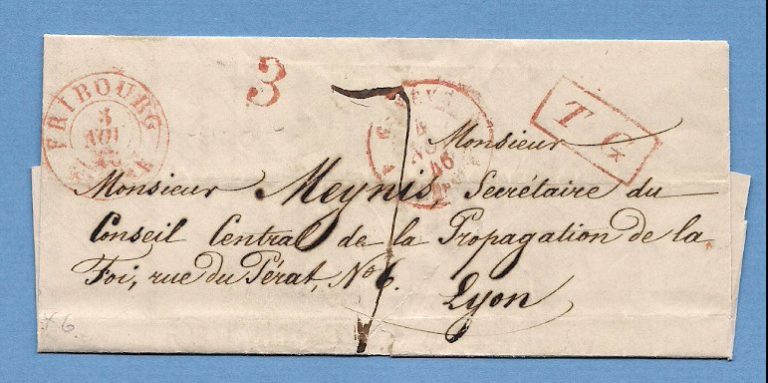 FRIBOURG
3
NOV
3
4
46
T. G.
7
Monsieur
Monsieur Meynis Secrétaire du
Conseil Central de la Propagation de la
Foi, rue du Pérat, No 6.
Lyon